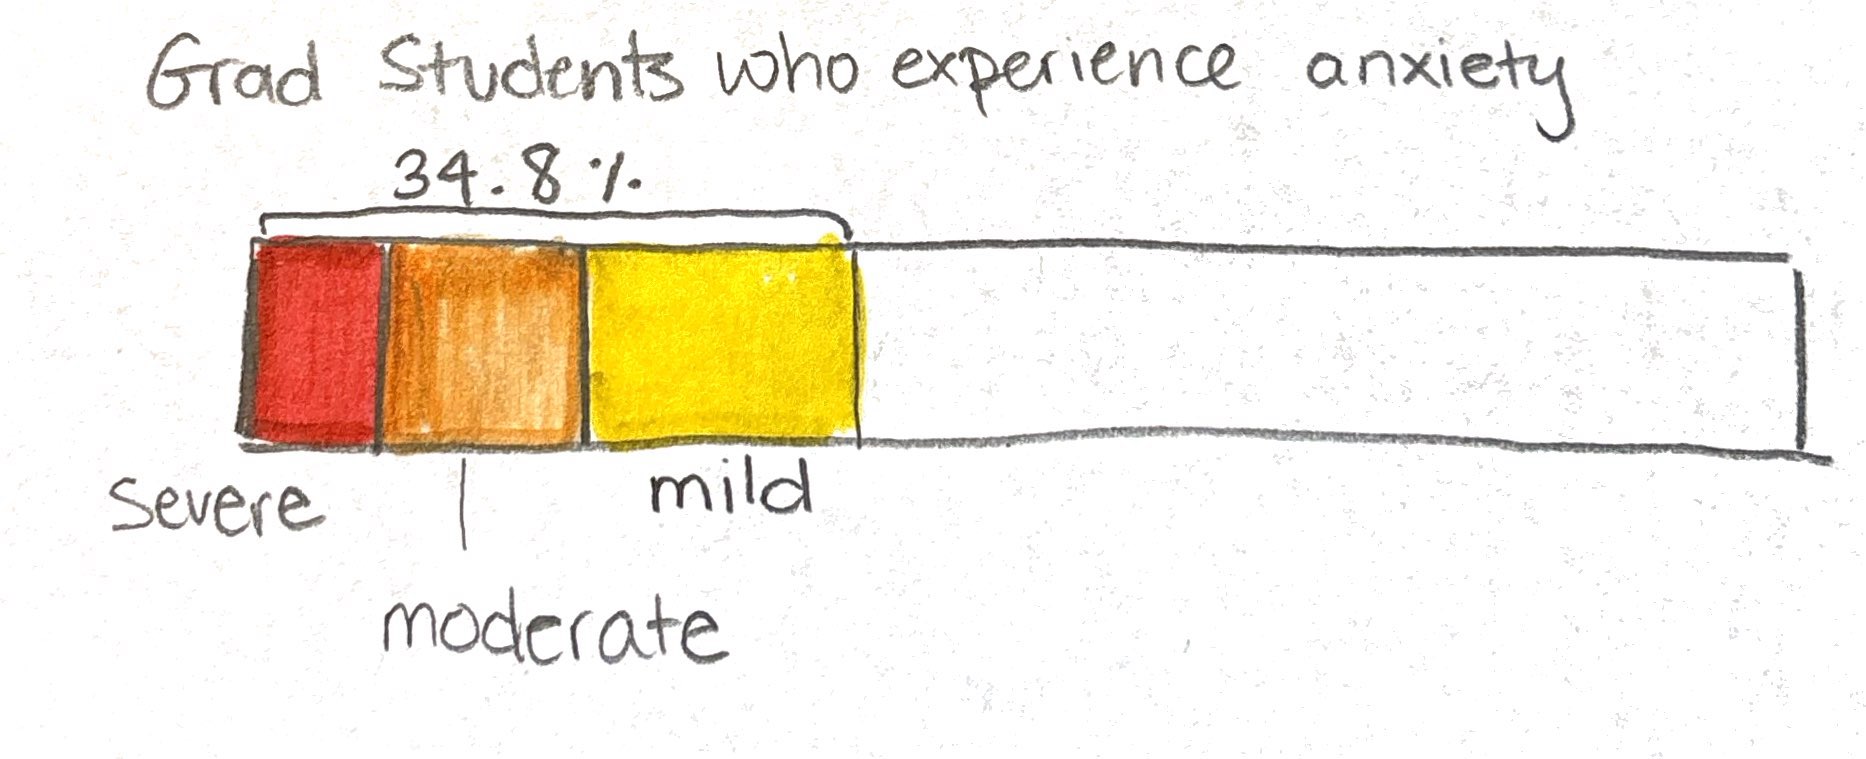 Grad Students who experience anxiety
34.8%
Severe
mild
moderate